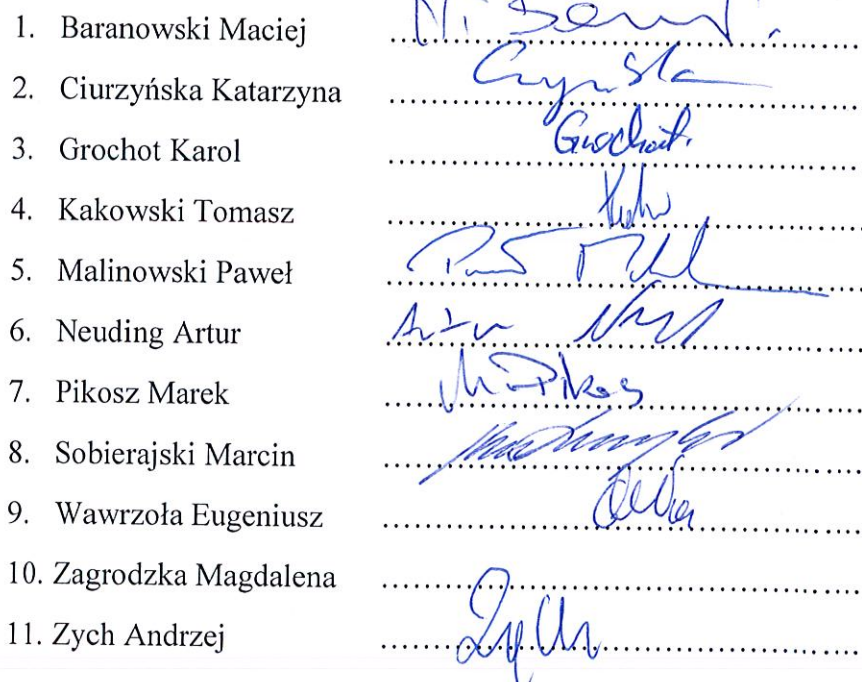 1. Baranowski Maciej
2. Ciurzyńska Katarzyna
3. Grochot Karol Grochot.
4. Kakowski Tomasz
5. Malinowski Paweł
6. Neuding Artur Artur
7. Pikosz Marek M. Pikosz
8. Sobierajski Marcin
9. Wawrzoła Eugeniusz
10. Zagrodzka Magdalena
11. Zych Andrzej Zych